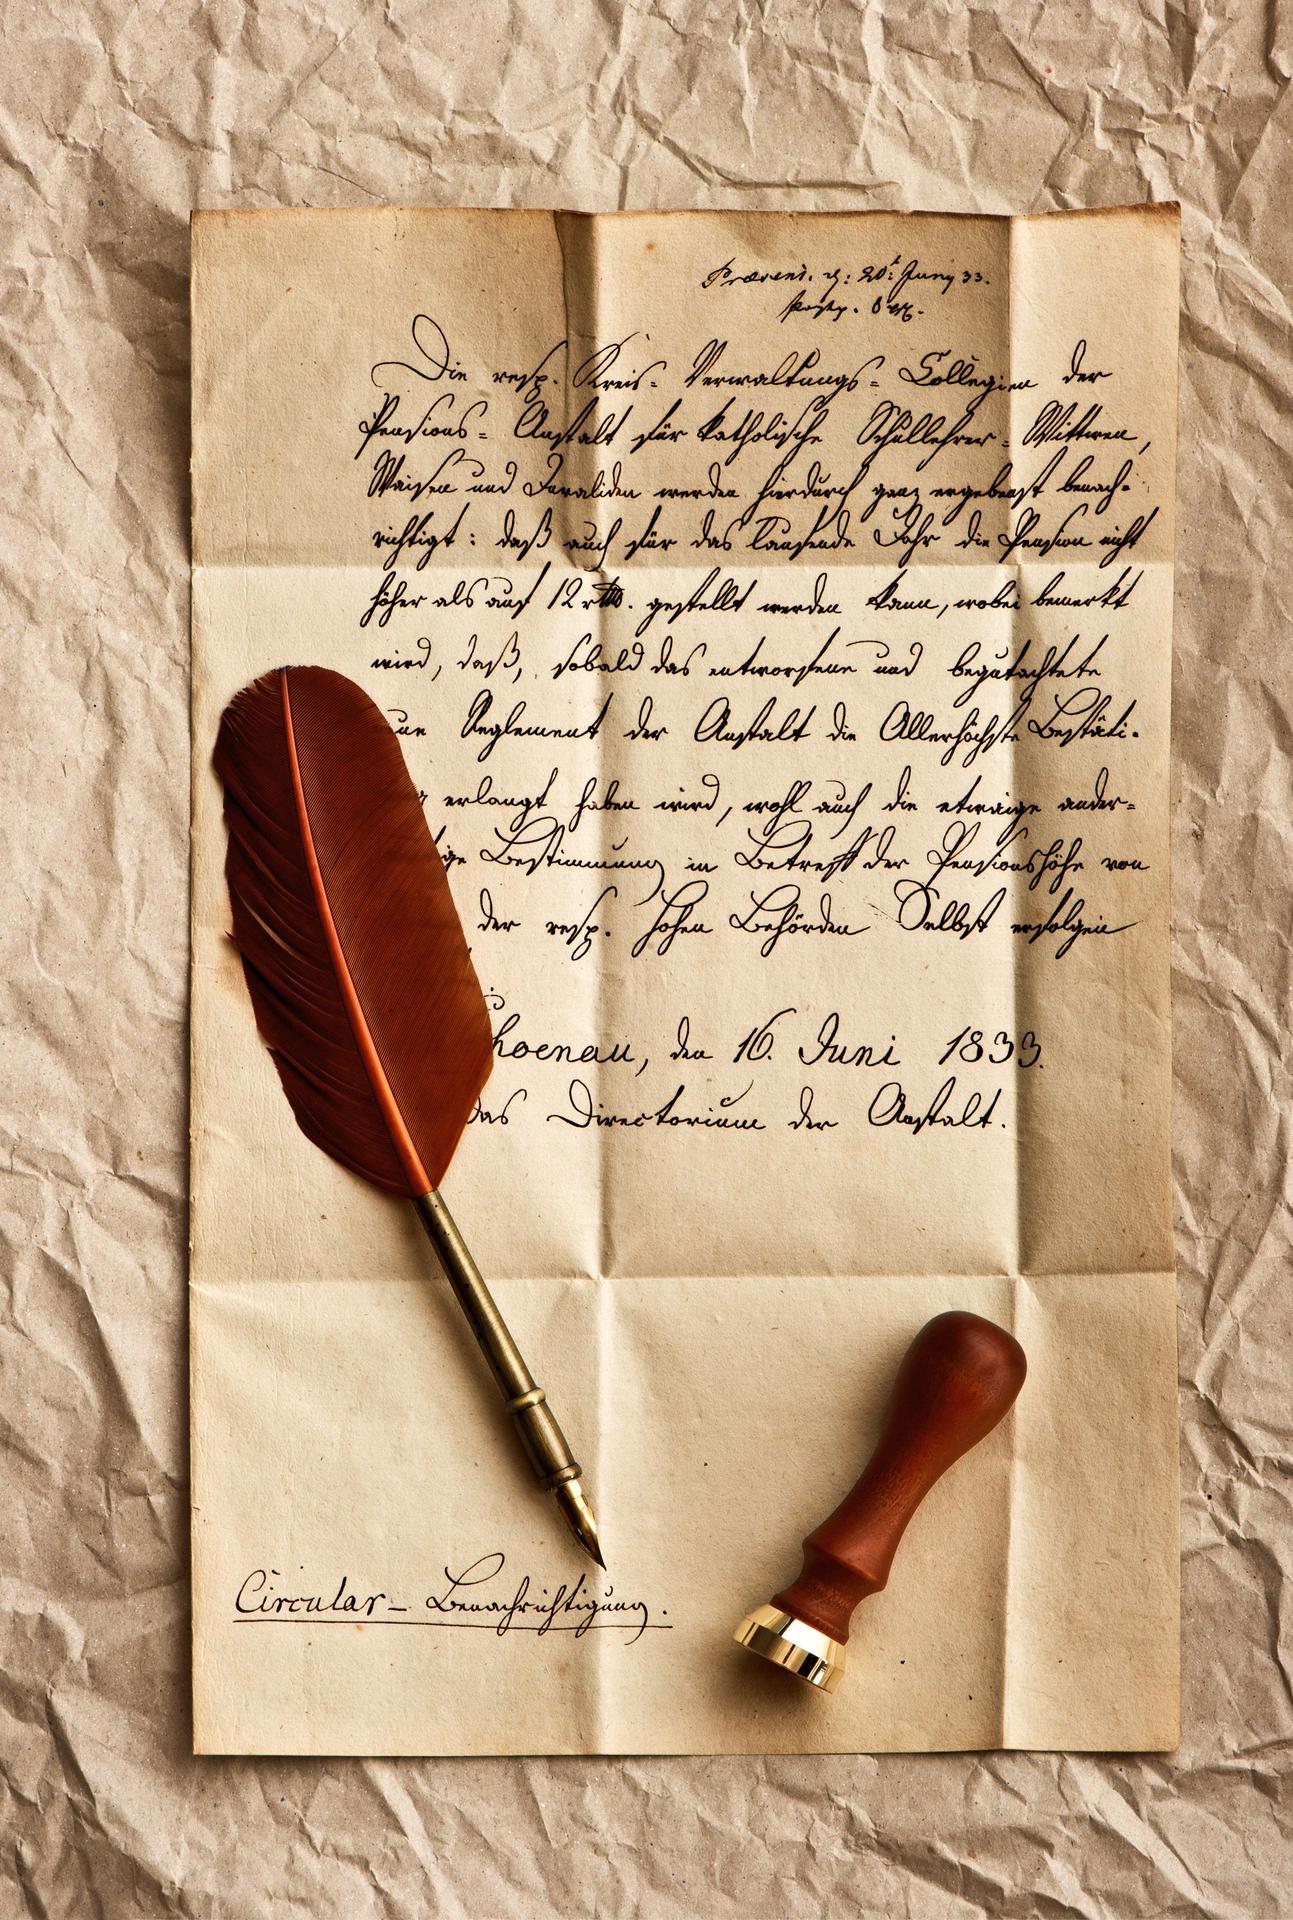 Præsent. d: 20t Juny 33.
Die resp. Kreis- Verwaltungs- Collegien der
Pensions- Anstalt für katholische Schullehrer- Wittwen,
Waisen und Invaliden werden hierdurch ganz ergebenst benach-
richtigt: daß auch für das laufende Jahr die Pension nicht
höher als auf 12 rthl. gestellt werden kann, wobei bemerkt
wird, daß, sobald das entworfene und begutachtete
Reglement der Anstalt die Allerhöchste Bestäti-
erlangt haben wird, wohl auch die etwaige ander-
Bestimmung in Betreff der Pensionshöhe von
der resp. hohen Behörden Selbst erfolgen
hoenau, den 16. Juni 1833.
Das Directorium der Anstalt.
Circular- Benachrichtigung.